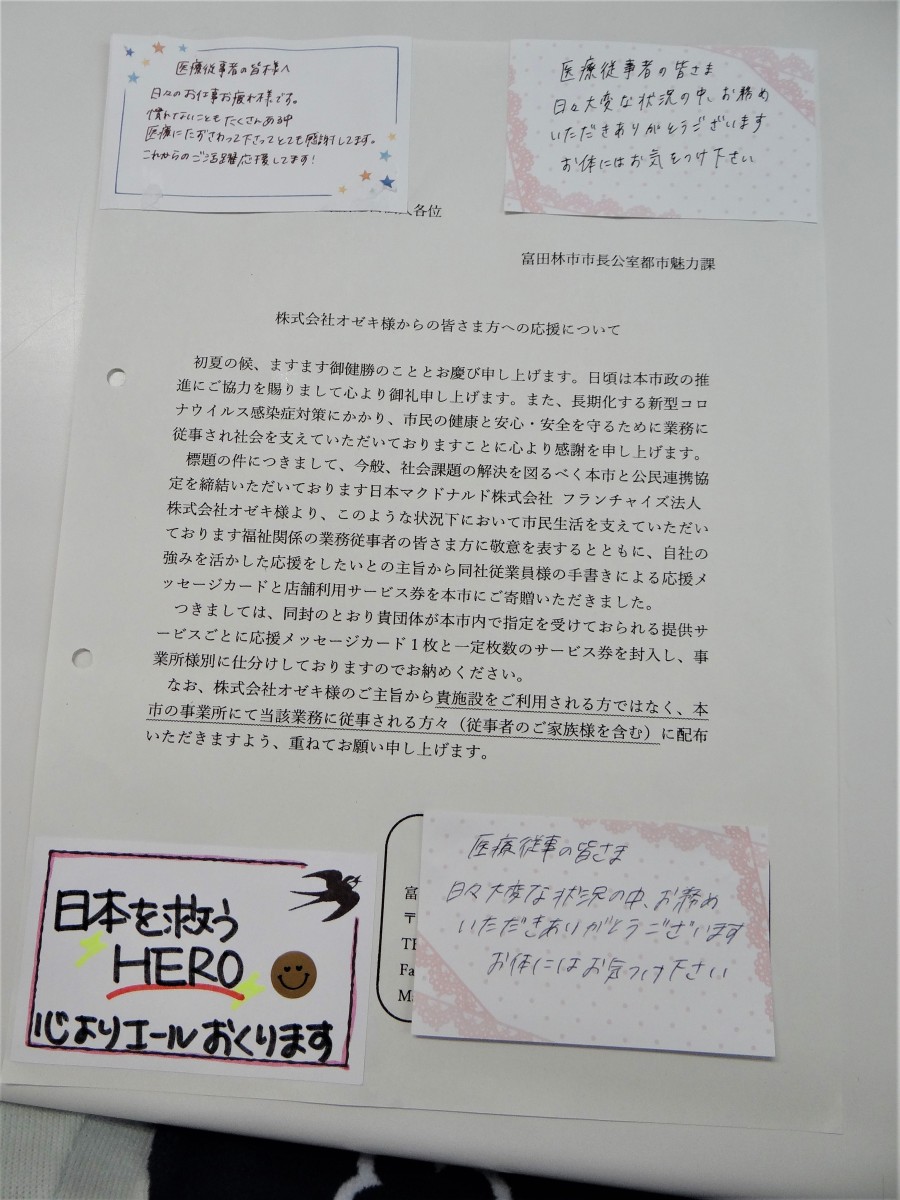 医療従事者の皆様へ
日々のお仕事お疲れ様です。
慣れないこともたくさんある中
医療にたずさわって下さってとても感謝してます。
これからのご活躍応援してます!
医療従事者の皆さま
日々大変な状況の中、お務め
いただきありがとうございます
お体にはお気をつけ下さい
各位
富田林市市長公室都市魅力課
株式会社オゼキ様からの皆さま方への応援について
初夏の候、ますます御健勝のこととお慶び申し上げます。日頃は本市政の推
進にご協力を賜りまして心より御礼申し上げます。また、長期化する新型コロ
ナウイルス感染症対策にかかり、市民の健康と安心・安全を守るために業務に
従事され社会を支えていただいておりますことに心より感謝を申し上げます。
標題の件につきまして、今般、社会課題の解決を図るべく本市と公民連携協
定を締結いただいております日本マクドナルド株式会社 フランチャイズ法人
株式会社オゼキ様より、このような状況下において市民生活を支えていただい
ております福祉関係の業務従事者の皆さま方に敬意を表するとともに、自社の
強みを活かした応援をしたいとの主旨から同社従業員様の手書きによる応援メ
ッセージカードと店舗利用サービス券を本市にご寄贈いただきました。
つきましては、同封のとおり貴団体が本市内で指定を受けておられる提供サ
ービスごとに応援メッセージカード1枚と一定枚数のサービス券を封入し、事
業所様別に仕分けしておりますのでお納めください。
なお、株式会社オゼキ様のご主旨から貴施設をご利用される方ではなく、本
市の事業所にて当該業務に従事される方々(従事者のご家族様を含む)に配布
いただきますよう、重ねてお願い申し上げます。
富
〒
TE
Fa
Ma
日本を救う
HERO
心よりエールおくります
医療従事の皆さま
日々大変な状況の中、お務め
いただきありがとうございます
お体にはお気つけ下さい